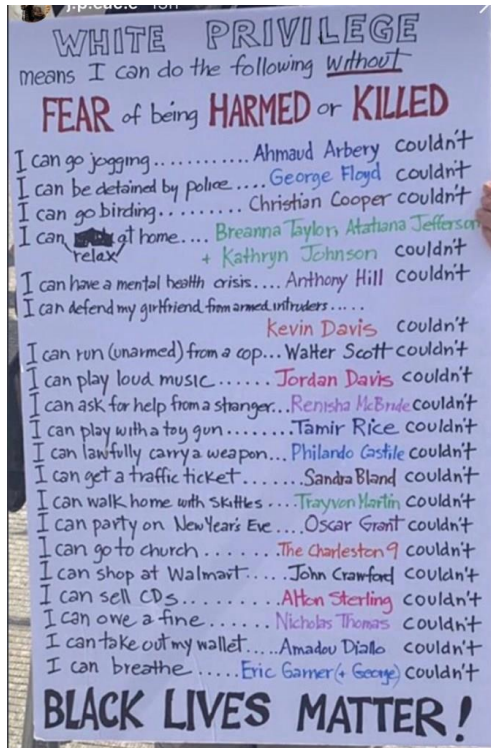 j.p.cac.c 15h
WHITE PRIVILEGE
means I can do the following without
FEAR of being HARMED or KILLED
I can go jogging............ Ahmaud Arbery couldn't
I can be detained by police.... George Floyd couldn't
I can go birding......... Christian Cooper couldn't
I can relax at home.... Breanna Taylor, Atatiana Jefferson
+ Kathryn Johnson couldn't
I can have a mental health crisis.... Anthony Hill couldn't
I can defend my girlfriend from armed intruders.....
Kevin Davis couldn't
I can run (unarmed) from a cop... Walter Scott couldn't
I can play loud music...... Jordan Davis couldn't
I can ask for help from a stranger... Renisha McBride couldn't
I can play with a toy gun........ Tamir Rice couldn't
I can lawfully carry a weapon... Philando Castile couldn't
I can get a traffic ticket....... Sandra Bland couldn't
I can walk home with skittles .... Trayvon Martin couldn't
I can party on New Year's Eve .... Oscar Grant couldn't
I can go to church ....... The Charleston 9 couldn't
I can shop at Walmart..... John Crawford couldn't
I can sell CDs......... Alton Sterling couldn't
I can owe a fine....... Nicholas Thomas couldn't
I can take out my wallet..... Amadou Diallo couldn't
I can breathe ...... Eric Garner (+ George) couldn't
BLACK LIVES MATTER!